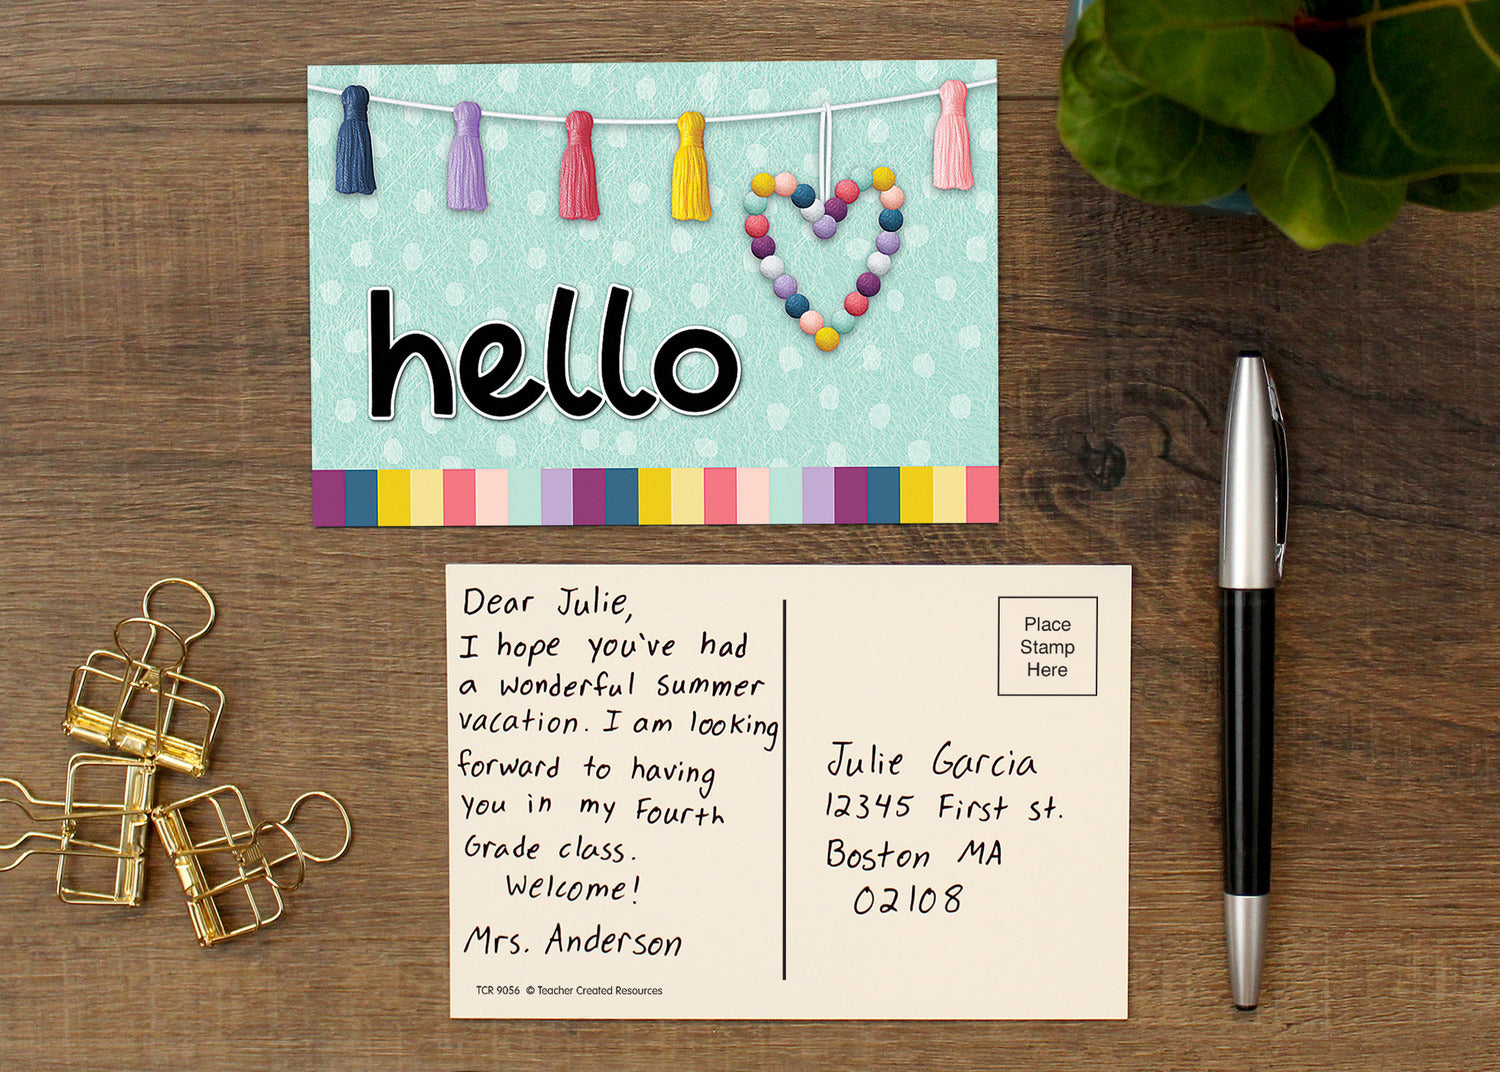 hello
Dear Julie,
I hope you've had
a wonderful summer
vacation. I am looking
forward to having
you in my Fourth
Grade class.
Welcome!
Mrs. Anderson
TCR 9056 © Teacher Created Resources
Place
Stamp
Here
Julie Garcia
12345 First st.
Boston MA
02108